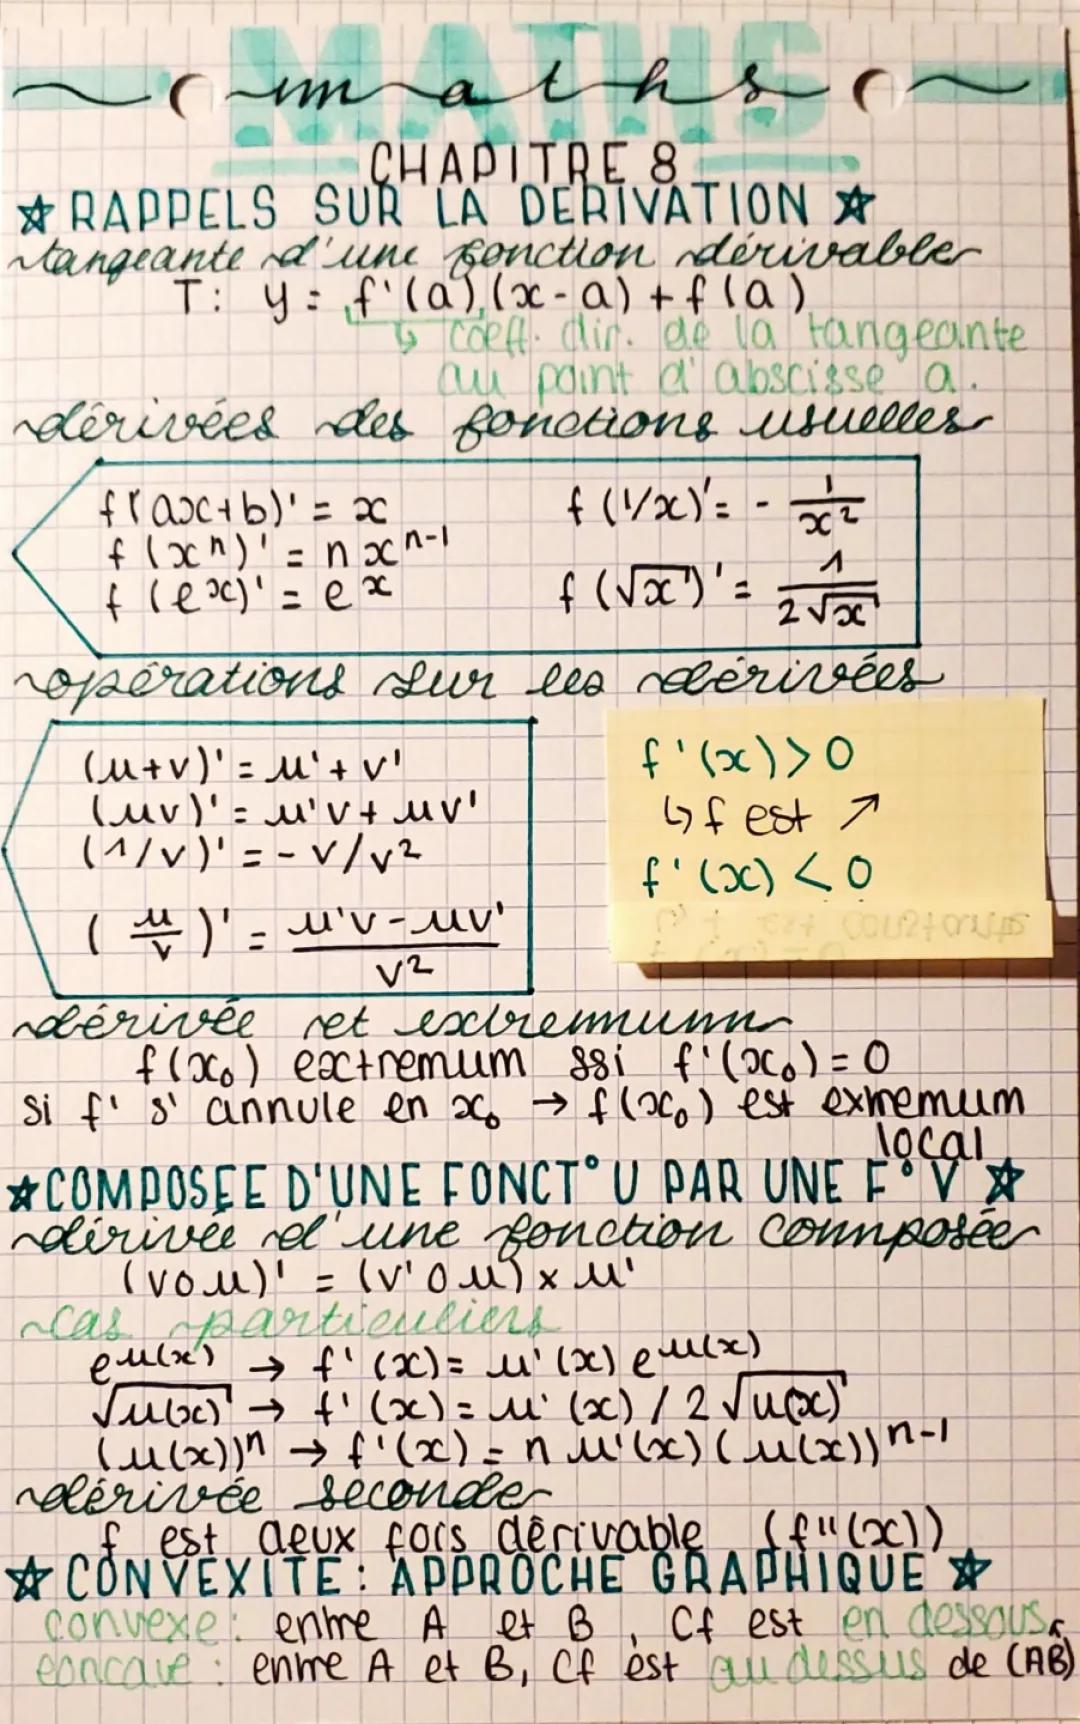 MATHS
maths
CHAPITRE 8
☆ RAPPELS SUR LA DERIVATION ☆
tangeante d'une fonction dérivable
T: y = f'(a)(x-a) + f(a)
↳ coeff. dir. de la tangeante
au point d'abscisse a.
dérivées des fonctions usuelles
f(ax+b)' = x
f(1/x)' = - 1/x²
f(xⁿ)' = nxⁿ⁻¹
f(eˣ)' = eˣ
f(√x)' = 1/2√x
opérations sur les dérivées
(u+v)' = u' + v'
(uv)' = u'v + uv'
(1/v)' = - v/v²
(u/v)' = u'v - uv'/v²
f'(x) > 0
↳ f est ↗
f'(x) < 0
dérivée et extremumm
f(x₀) extremum ssi f'(x₀) = 0
si f' s'annule en x₀ → f(x₀) est extremum
local
☆ COMPOSEE D'UNE FONCT° U PAR UNE F° V ☆
dérivée d'une fonction composée
(vou)' = (v'ou) × u'
cas particuliers
e^u(x) → f'(x) = u'(x) e^u(x)
√u(x) → f'(x) = u'(x) / 2√u(x)
(u(x))ⁿ → f'(x) = n u'(x) (u(x))ⁿ⁻¹
dérivée seconde
f est deux fois dérivable (f''(x))
☆ CONVEXITE : APPROCHE GRAPHIQUE ☆
convexe : entre A et B, Cf est en dessous
concave : entre A et B, Cf est au dessus de (AB)